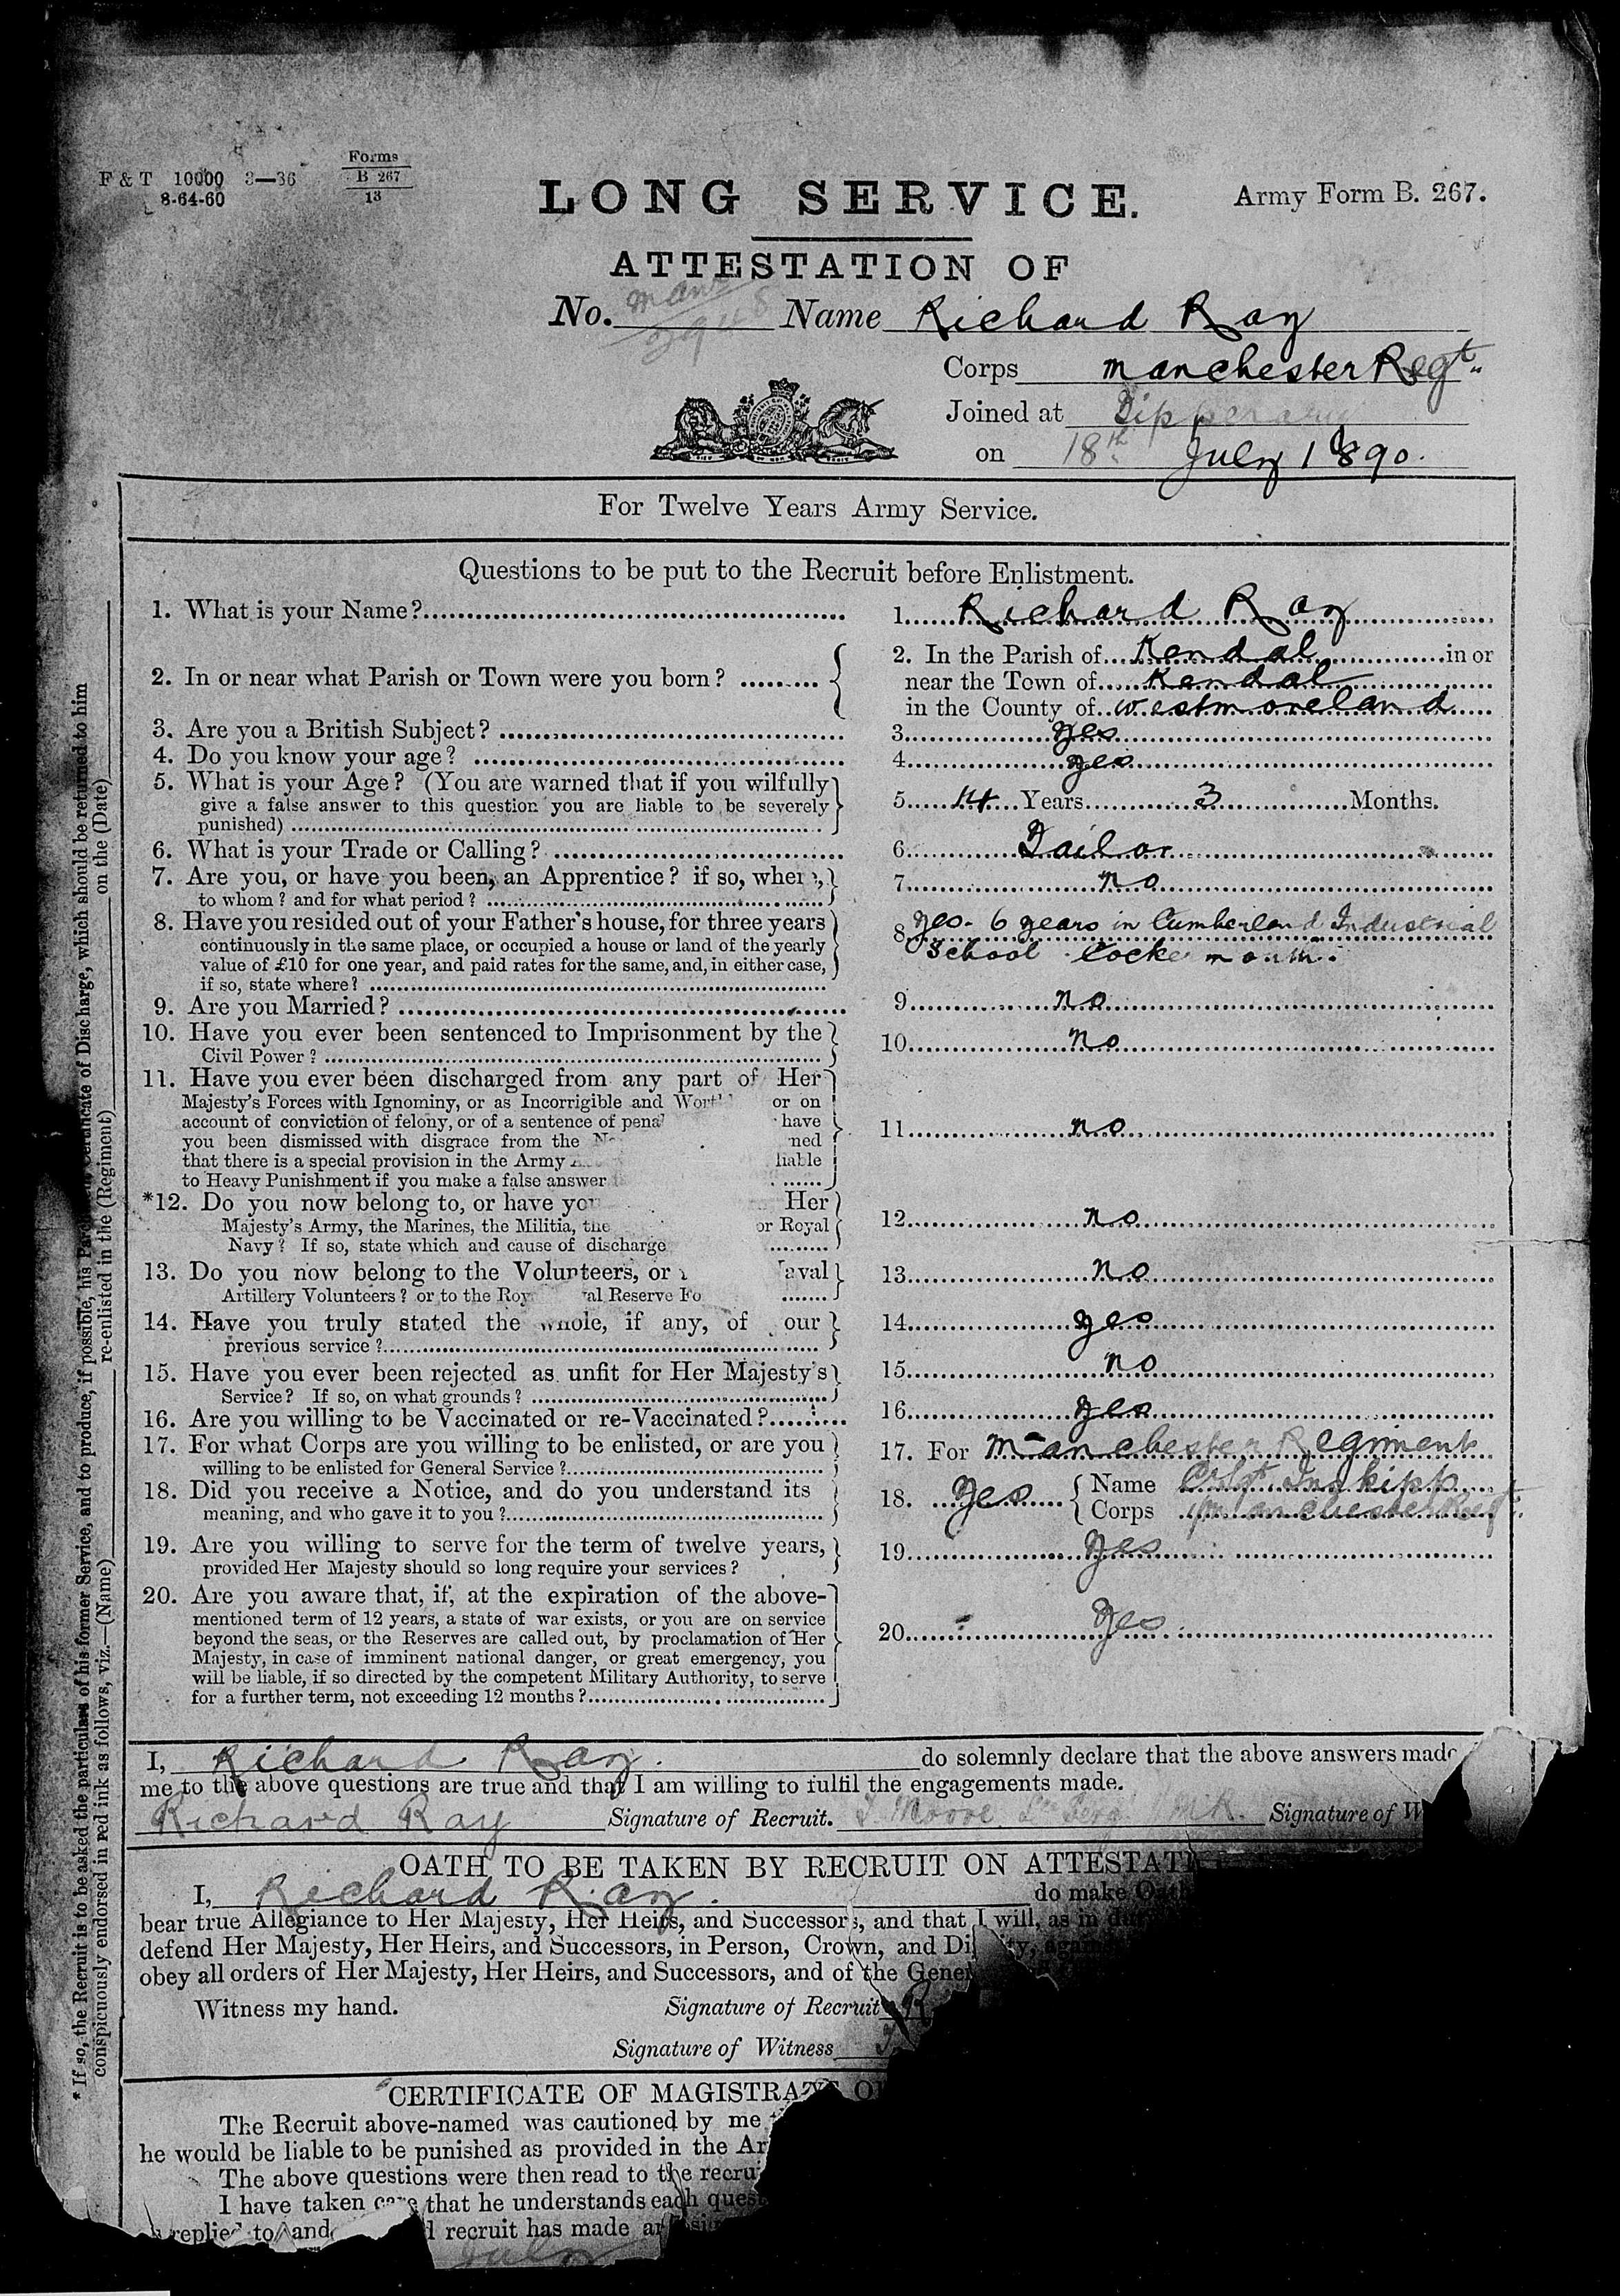 F & T 10000 3—36
8-64-60
Forms
B 267
13
LONG SERVICE.
Army Form B. 267.
ATTESTATION OF
No. Name Richard Ray
Corps Manchester Regt.
Joined at Tipperary
on 18th July 1890.
For Twelve Years Army Service.
Questions to be put to the Recruit before Enlistment.
1. What is your Name? 1. Richard Ray
2. In or near what Parish or Town were you born? 2. In the Parish of Kendal in or
near the Town of Kendal
in the County of Westmoreland
3. Are you a British Subject? 3. yes
4. Do you know your age? 4. yes
5. What is your Age? (You are warned that if you wilfully
give a false answer to this question you are liable to be severely 5. 14 Years 3 Months.
punished)
6. What is your Trade or Calling? 6. Tailor
7. Are you, or have you been, an Apprentice? if so, where, 7. no
to whom? and for what period?
8. Have you resided out of your Father's house, for three years 8. yes - 6 years in Cumberland Industrial
continuously in the same place, or occupied a house or land of the yearly School
value of £10 for one year, and paid rates for the same, and, in either case,
if so, state where?
9. Are you Married? 9. no
10. Have you ever been sentenced to Imprisonment by the 10. no
Civil Power?
11. Have you ever been discharged from any part of Her
Majesty's Forces with Ignominy, or as Incorrigible and or on
account of conviction of felony, or of a sentence of have 11. no
you been dismissed with disgrace from the
that there is a special provision in the Army liable
to Heavy Punishment if you make a false answer
*12. Do you now belong to, or have Her
Majesty's Army, the Marines, the Militia, the or Royal 12. no
Navy? If so, state which and cause of discharge
13. Do you now belong to the Volunteers, or 13. no
Artillery Volunteers? or to the Reserve
14. Have you truly stated the whole, if any, of 14. yes
previous service?
15. Have you ever been rejected as unfit for Her Majesty's 15. no
Service? If so, on what grounds?
16. Are you willing to be Vaccinated or re-Vaccinated? 16. yes
17. For what Corps are you willing to be enlisted, or are you 17. For Manchester Regiment
willing to be enlisted for General Service?
18. Did you receive a Notice, and do you understand its 18. yes Name Inskipp
meaning, and who gave it to you? Corps Manchester Regt.
19. Are you willing to serve for the term of twelve years, 19. yes
provided Her Majesty should so long require your services?
20. Are you aware that, if, at the expiration of the above-
mentioned term of 12 years, a state of war exists, or you are on service
beyond the seas, or the Reserves are called out, by proclamation of Her 20. yes
Majesty, in case of imminent national danger, or great emergency, you
will be liable, if so directed by the competent Military Authority, to serve
for a further term, not exceeding 12 months?
I, Richard Ray. do solemnly declare that the above answers made
me to the above questions are true and that I am willing to fulfil the engagements made.
Richard Ray Signature of Recruit. Moore Signature of
OATH TO BE TAKEN BY RECRUIT ON
I, Richard Ray. do make Oath
bear true Allegiance to Her Majesty, Her Heirs, and Successors, and that I will, as in
defend Her Majesty, Her Heirs, and Successors, in Person, Crown, and
obey all orders of Her Majesty, Her Heirs, and Successors, and of the
Witness my hand. Signature of Recruit
Signature of Witness
CERTIFICATE OF MAGISTRATE
The Recruit above-named was cautioned by me
he would be liable to be punished as provided in the
The above questions were then read to the
I have taken care that he understands each
replied to, and recruit has made
July
* If so, the Recruit is to be asked the particulars of his former Service, and to produce, if possible, his Certificate of Discharge, which should be returned to him
conspicuously endorsed in red ink as follows, viz.—(Name) re-enlisted in the (Regiment) on the (Date)